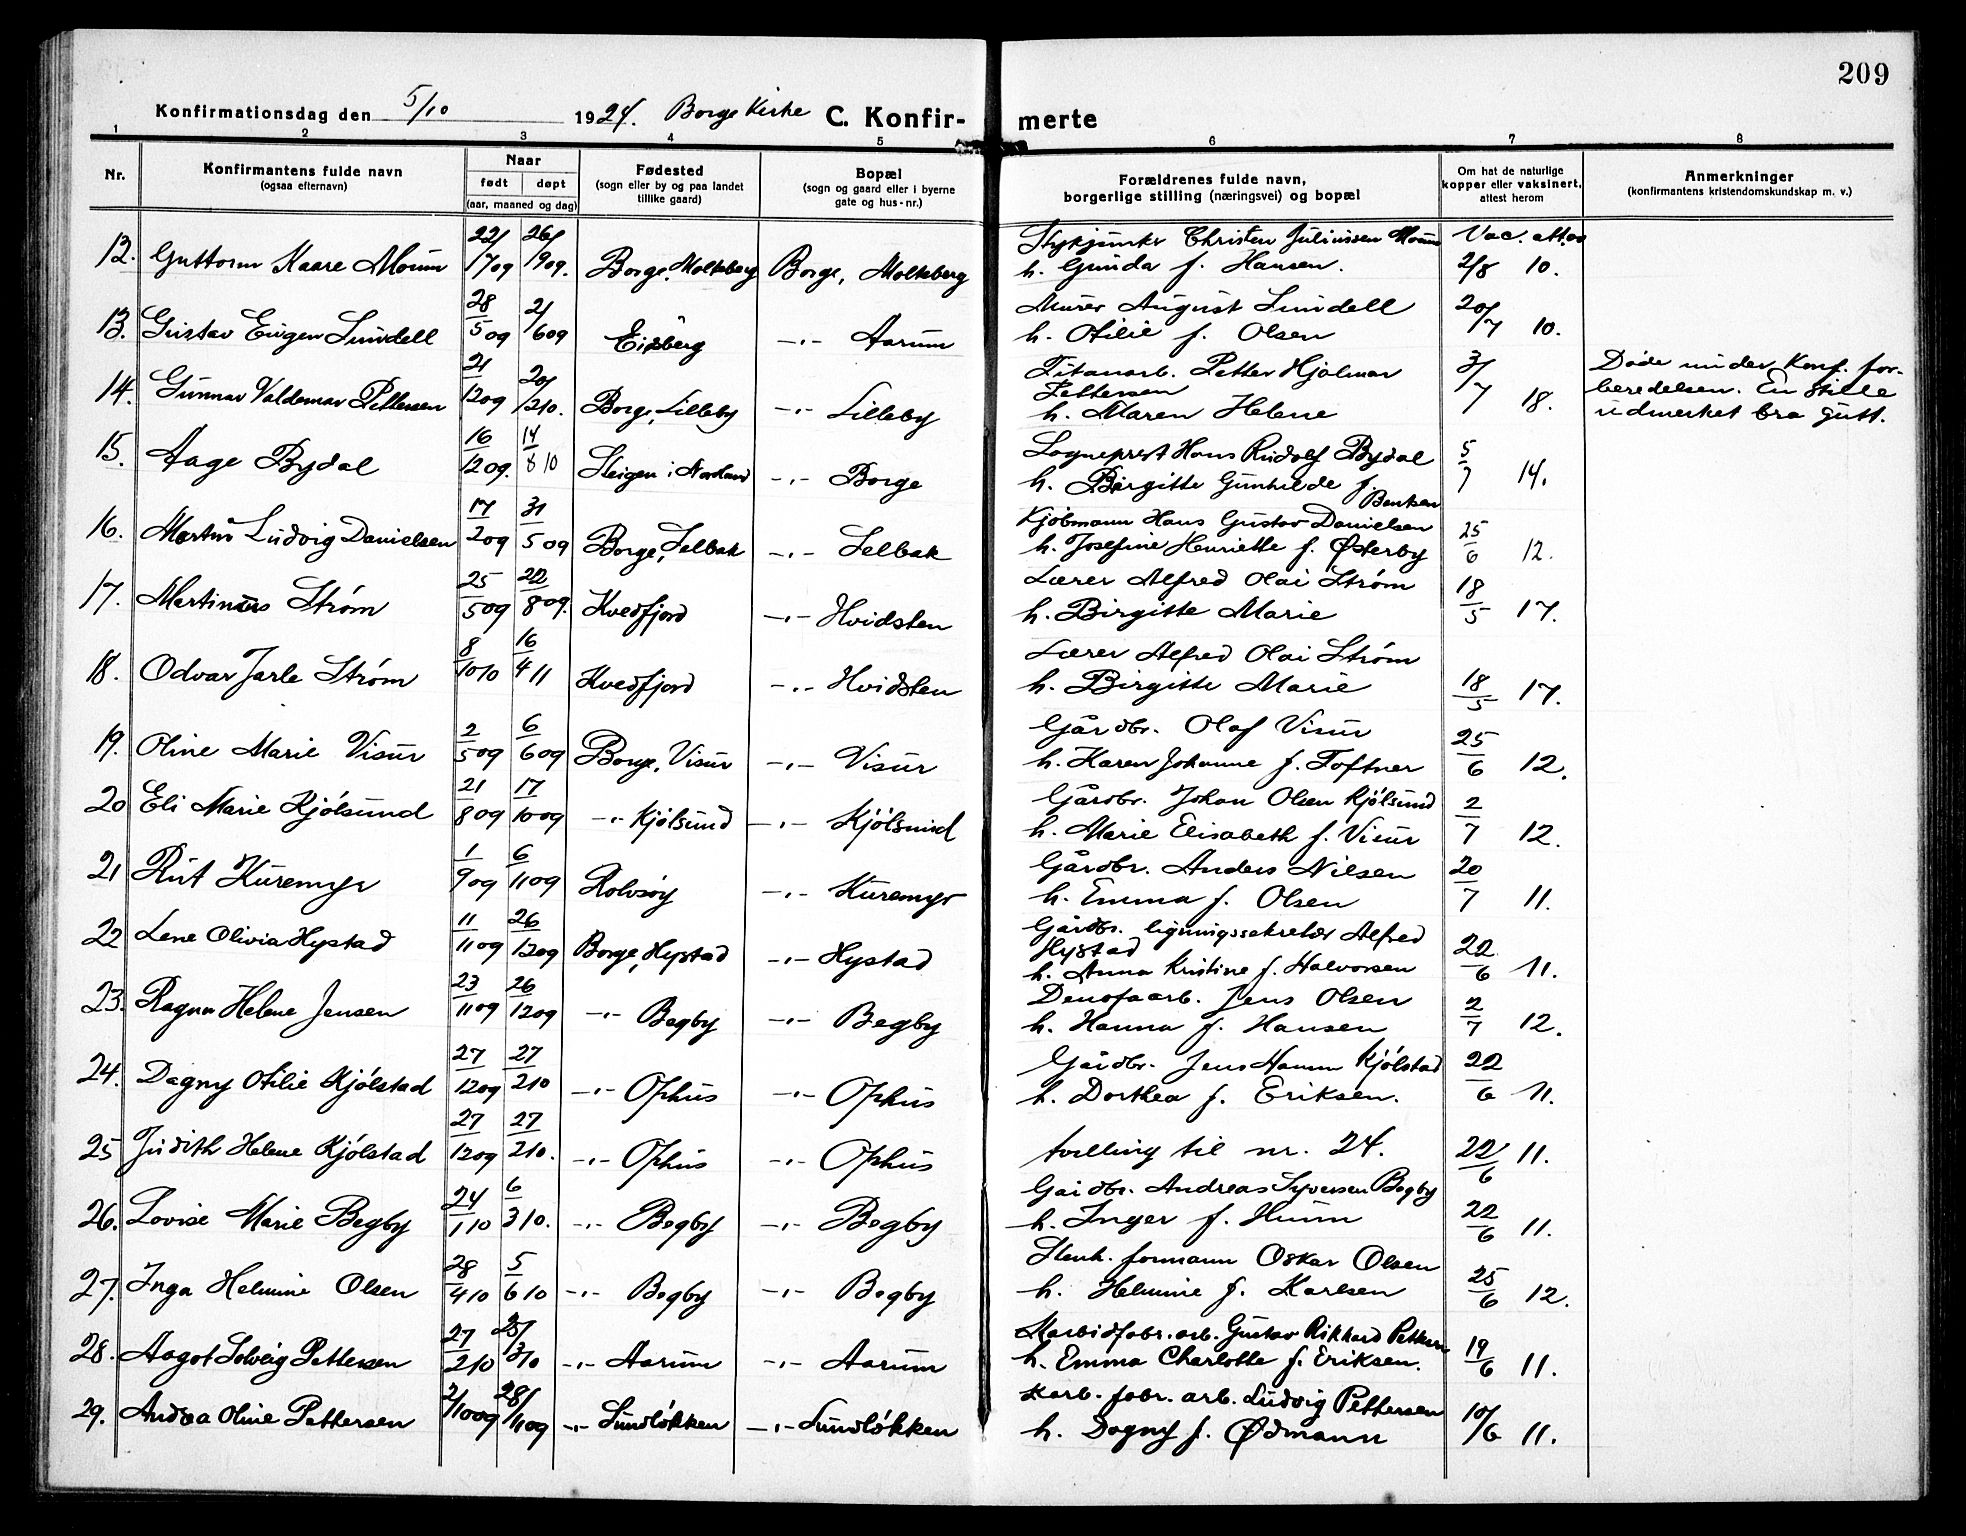 209
Konfirmationsdag den 5/10 1924. Borge Kirke C. Konfir- merte
1 2 3 4 5 6 7 8
Nr. Konfirmantens fulde navn (ogsaa efternavn) Naar født døpt (aar, maaned og dag) Fødested (sogn eller by og paa landet tillike gaard) Bopæl (sogn og gaard eller i byerne gate og hus-nr.) Forældrenes fulde navn, borgerlige stilling (næringsvei) og bopæl Om hat de naturlige kopper eller vaksinert, attest herom Anmerkninger (konfirmantens kristendomskundskap m. v.)
12. Guttorm Kaare Moum 22/1709 26/909. Borge, Molteberg Borge, Molteberg Christen Juliussen Moum Vac. att.
h. Gunda f. Hansen. 2/8 10.
13. Gustav Eugen Lundell 28/5 09 2/609 Eidsberg -"- Aarum Murer August Lundell 20/7 10.
h. Otilie f. Olsen
14. Gunnar Valdemar Pettersen 21/1209 20/210. Borge, Lilleby -"- Lilleby Titanarb. Petter Hjalmar 3/7 18. Døde under Konf. for-
Pettersen beredelsen. En stille
h. Maren Helene udmerket bra gutt.
15. Aage Bydal 16/1209. 14/8 10 Steigen i Nordland -"- Borge Sogneprest Hans Rudolf Bydal 5/7 14.
h. Birgitte Gunhilde f. Bentsen
16. Martin Ludvig Danielsen 17/209 31/5 09 Borge, Selbak -"- Selbak Kjøbmann Hans Gustav Danielsen 25/6 12.
h. Josefine Henriette f. Østerby
17. Martinus Strøm 25/509 22/8 09. Kvedfjord -"- Hvidsten Lærer Alfred Olai Strøm 18/5 17.
h. Birgitte Marie
18. Odvar Jarle Strøm 8/1010 16/4 11 Kvedfjord -"- Hvidsten Lærer Alfred Olai Strøm
h. Birgitte Marie 18/5 17.
19. Oline Marie Visur 2/509 6/609 Borge, Visur -"- Visur Gårdbr. Olaf Visur 25/6 12.
h. Karen Johanne f. Toftner
20 Eli Marie Kjølsund 21/809 17/1009 -"- Kjølsund -"- Kjølsund Gårdbr. Johan Olsen Kjølsund 2/7 12.
h. Marie Elisabeth f. Visur
21 Rut Kuremyr 1/909 6/1109 Rolvsøy -"- Kuremyr Gårdbr. Anders Nilsen 20/7 11.
h. Emma f. Olsen
22 Lene Olivia Hystad 11/1109 26/1209 Borge, Hystad -"- Hystad Gårdbr. ligningssekretær Alfred
Hystad 22/6 11.
h. Anna Kristine f. Halvorsen
23. Ragna Helene Jensen 23/1109 26/1209 -"- Begby -"- Begby Denofaarb. Jens Olsen 2/7 12.
h. Hanna f. Hansen
24. Dagny Otilie Kjølstad 27/1209 27/210 -"- Ophus -"- Ophus Gårdbr. Jens Kjølstad 22/6 11.
h. Dorthea f. Eriksen.
25 Judith Helene Kjølstad 27/1209 27/210. -"- Ophus -"- Ophus tvilling til nr. 24. 22/6 11.
26. Lovise Marie Begby 24/110 6/310. -"- Begby -"- Begby Gårdbr. Andreas Syversen Begby
h. Inger f. Hunn 22/6 11.
27. Inga Helmine Olsen 28/410 5/610 -"- Begby -"- Begby Stenh. formann Oskar Olsen
h. Helmine f. Karlsen 25/6 12.
28. Aagot Solveig Pettersen 27/210 25/310 -"- Aarum -"- Aarum Karbidfabr. arb. Gustav Rikhard Pettersen
h. Emma Charlotte f. Eriksen. 19/6 11.
29. Andrea Oline Pettersen 2/1009 28/1109 -"- Sundløkken -"- Sundløkken Karb. fabr. arb. Ludvig Pettersen
h. Dagny f. Ødmann 10/6 11.